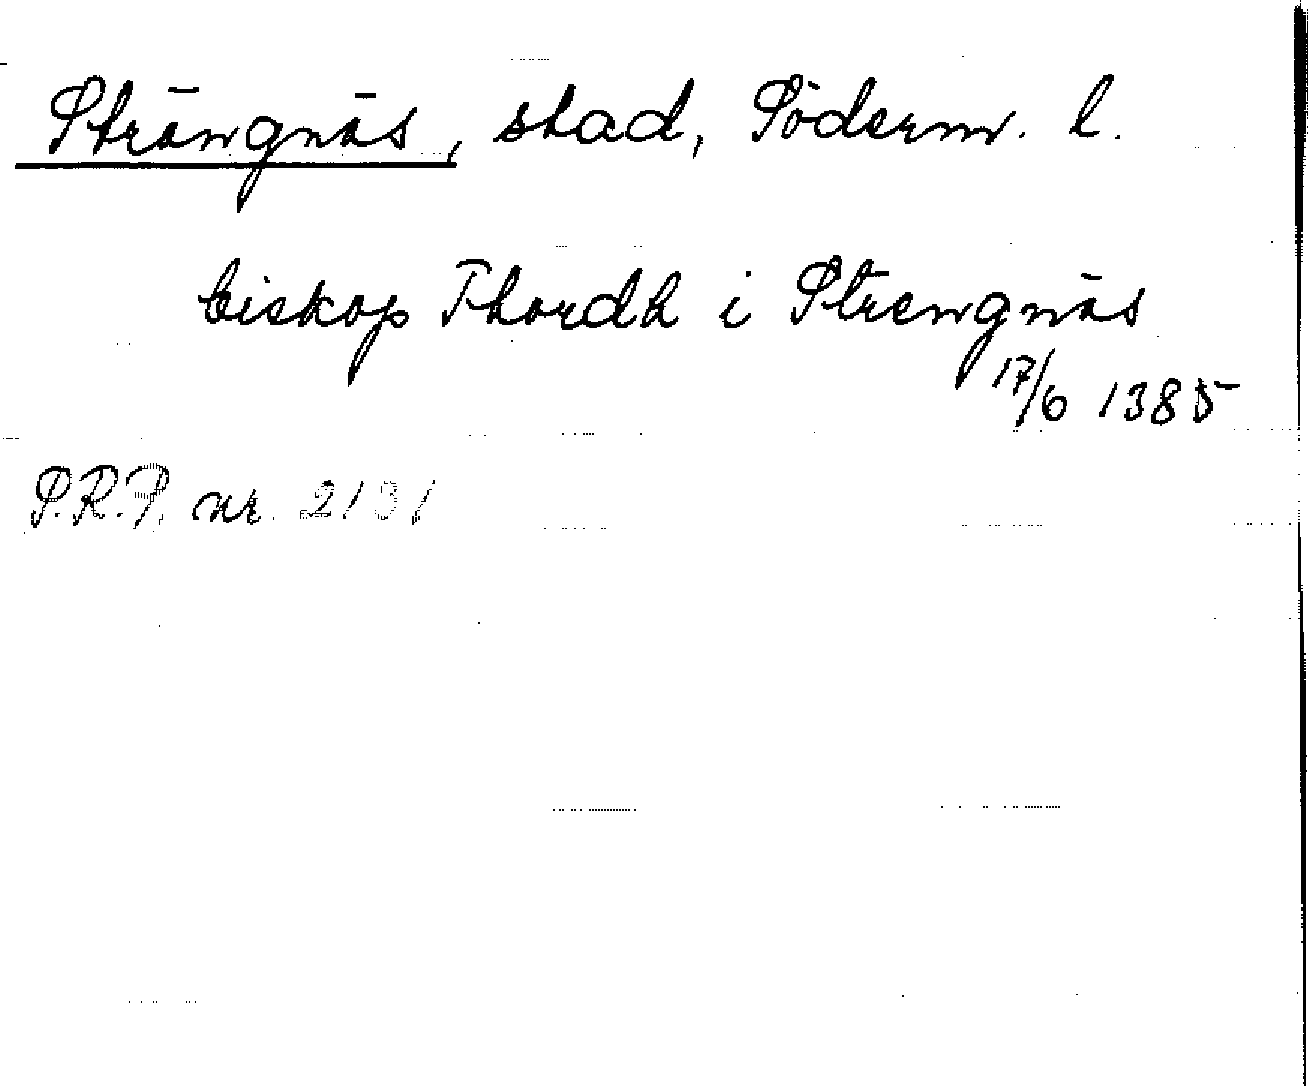 Strängnäs, stad, Söderm. l.
biskop Thordh i Strengnäs
17/6 1385
P.R.P. nr. 2131